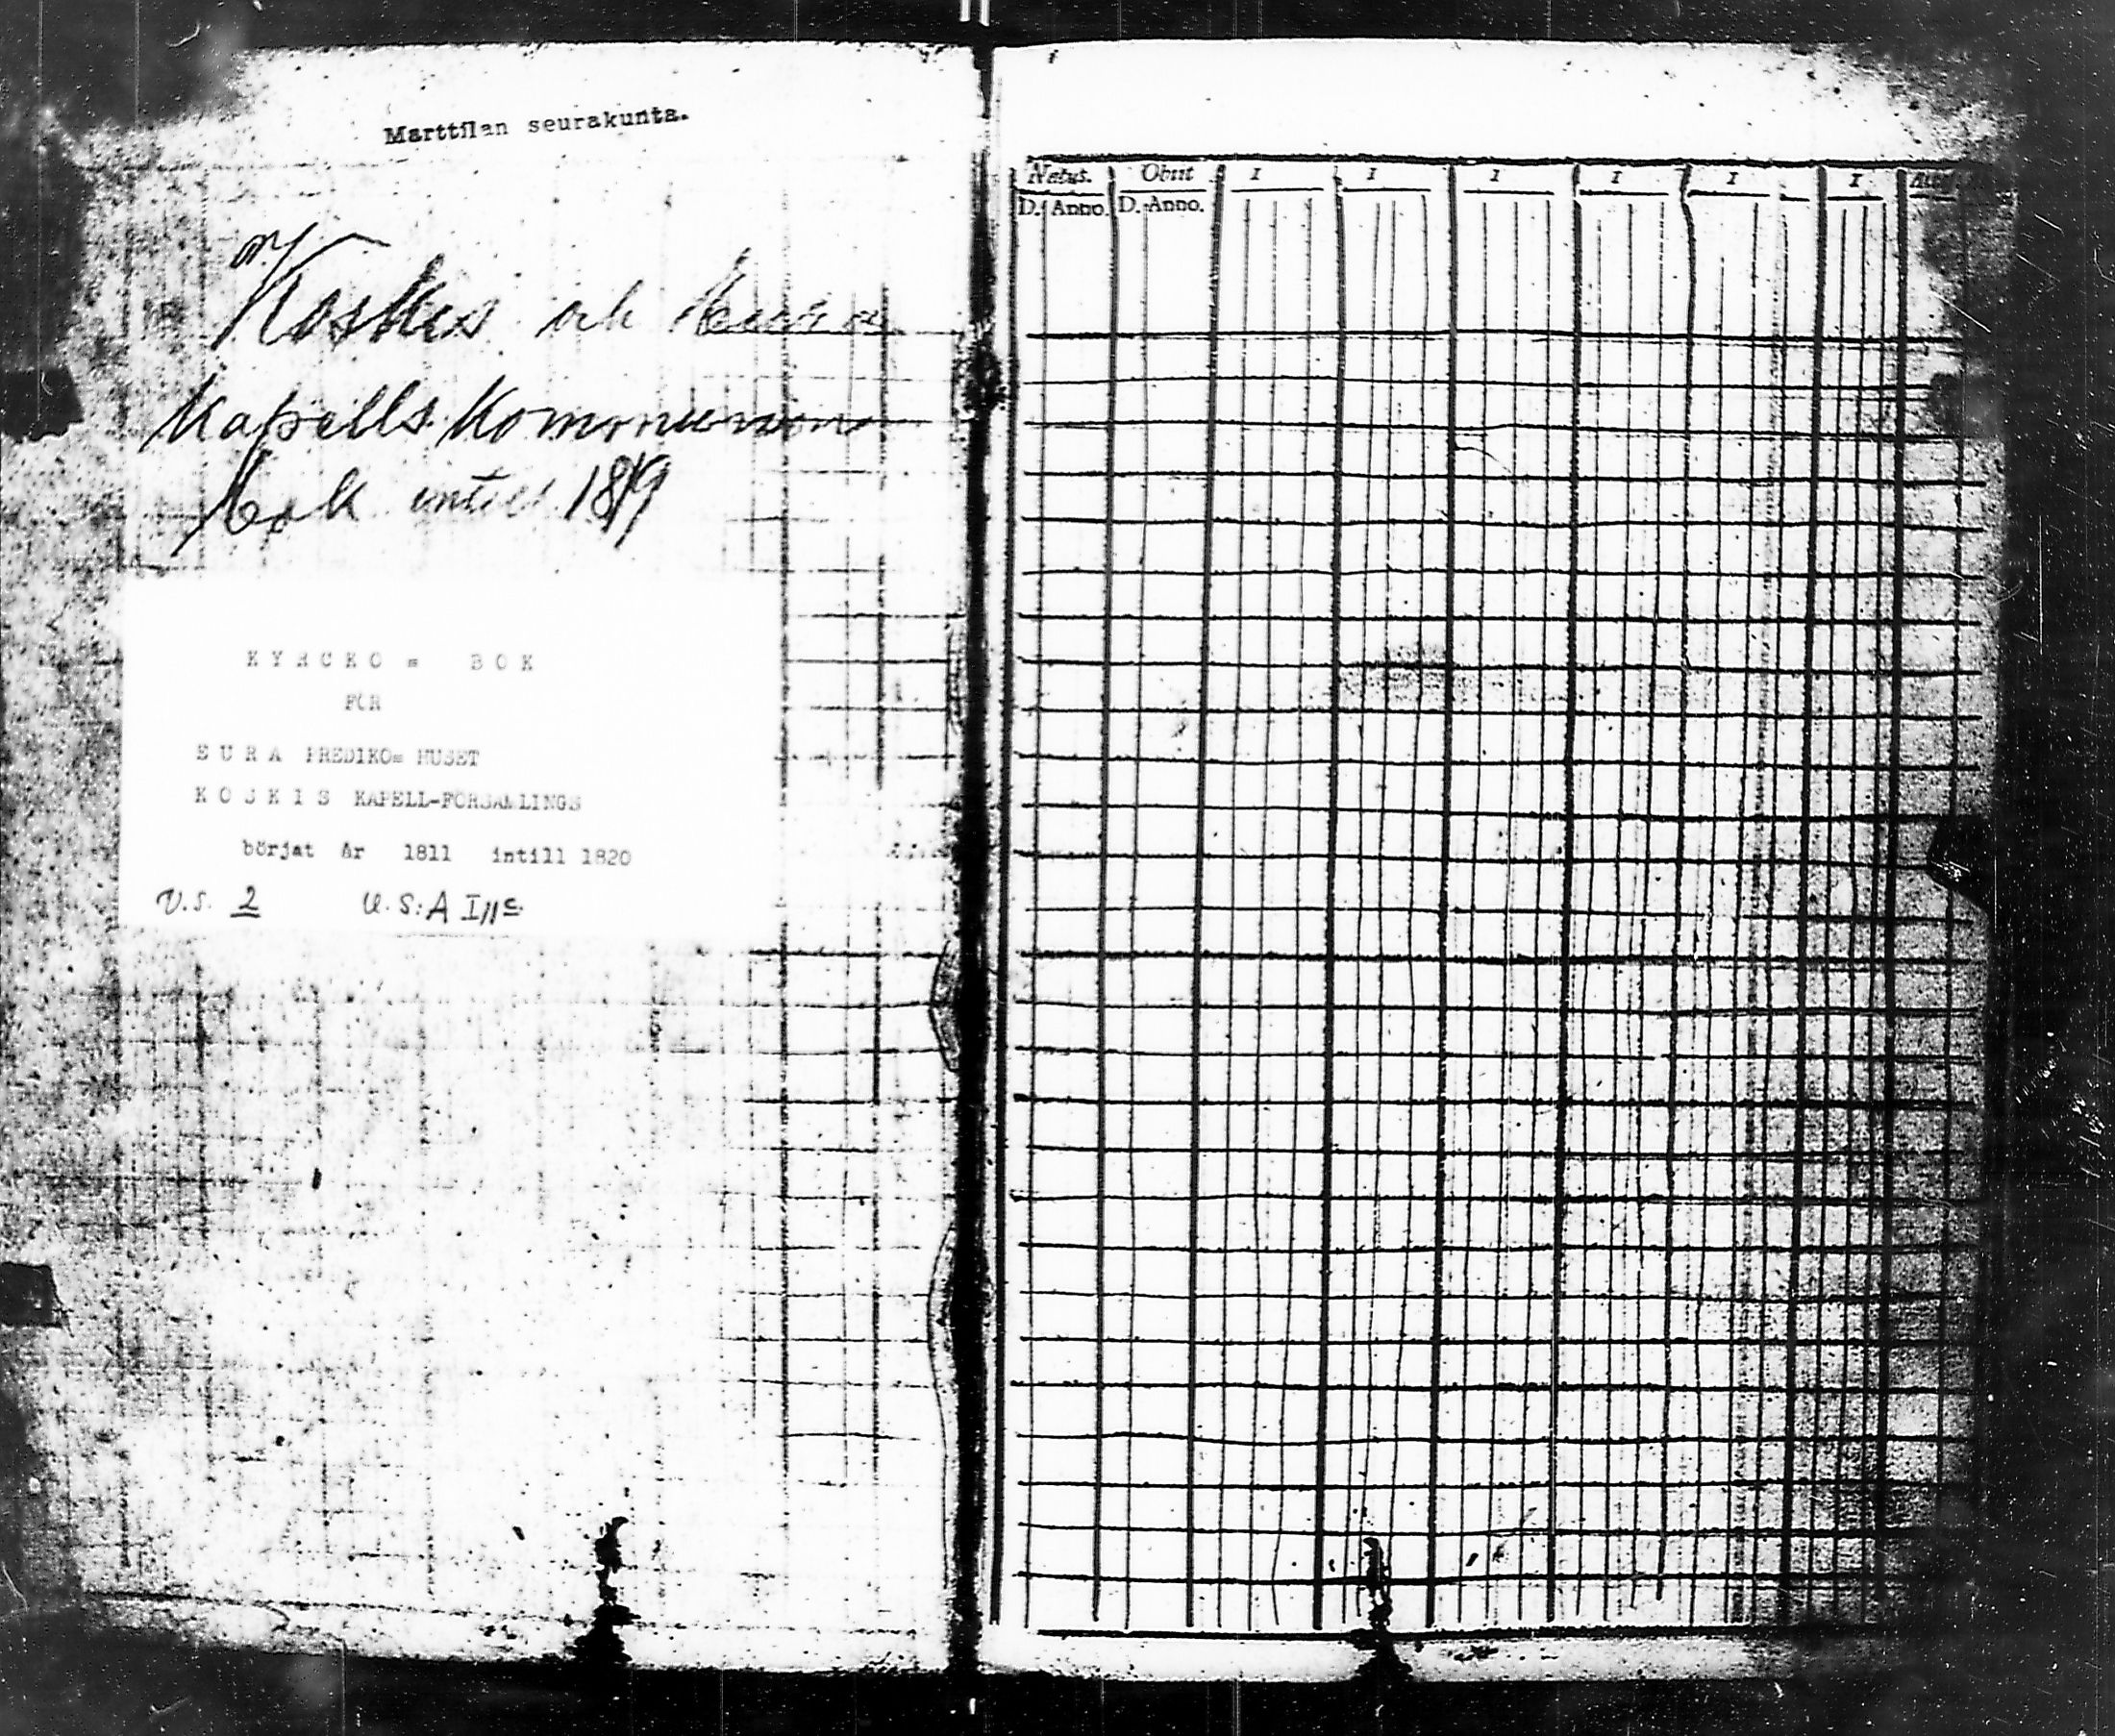 Marttilan seurakunta.
Koskis och Eura
Kapells Kommunion
bok intill 1819
KYRCKO = BOK
FÖR
EURA PREDIKO= HUSET
KOSKIS KAPELL-FÖRSAMLINGS
börjat år 1811 intill 1820
V.S. 2 U.S:A I11c
Natus. Obiit I I I I I I
D. Anno. D. Anno.